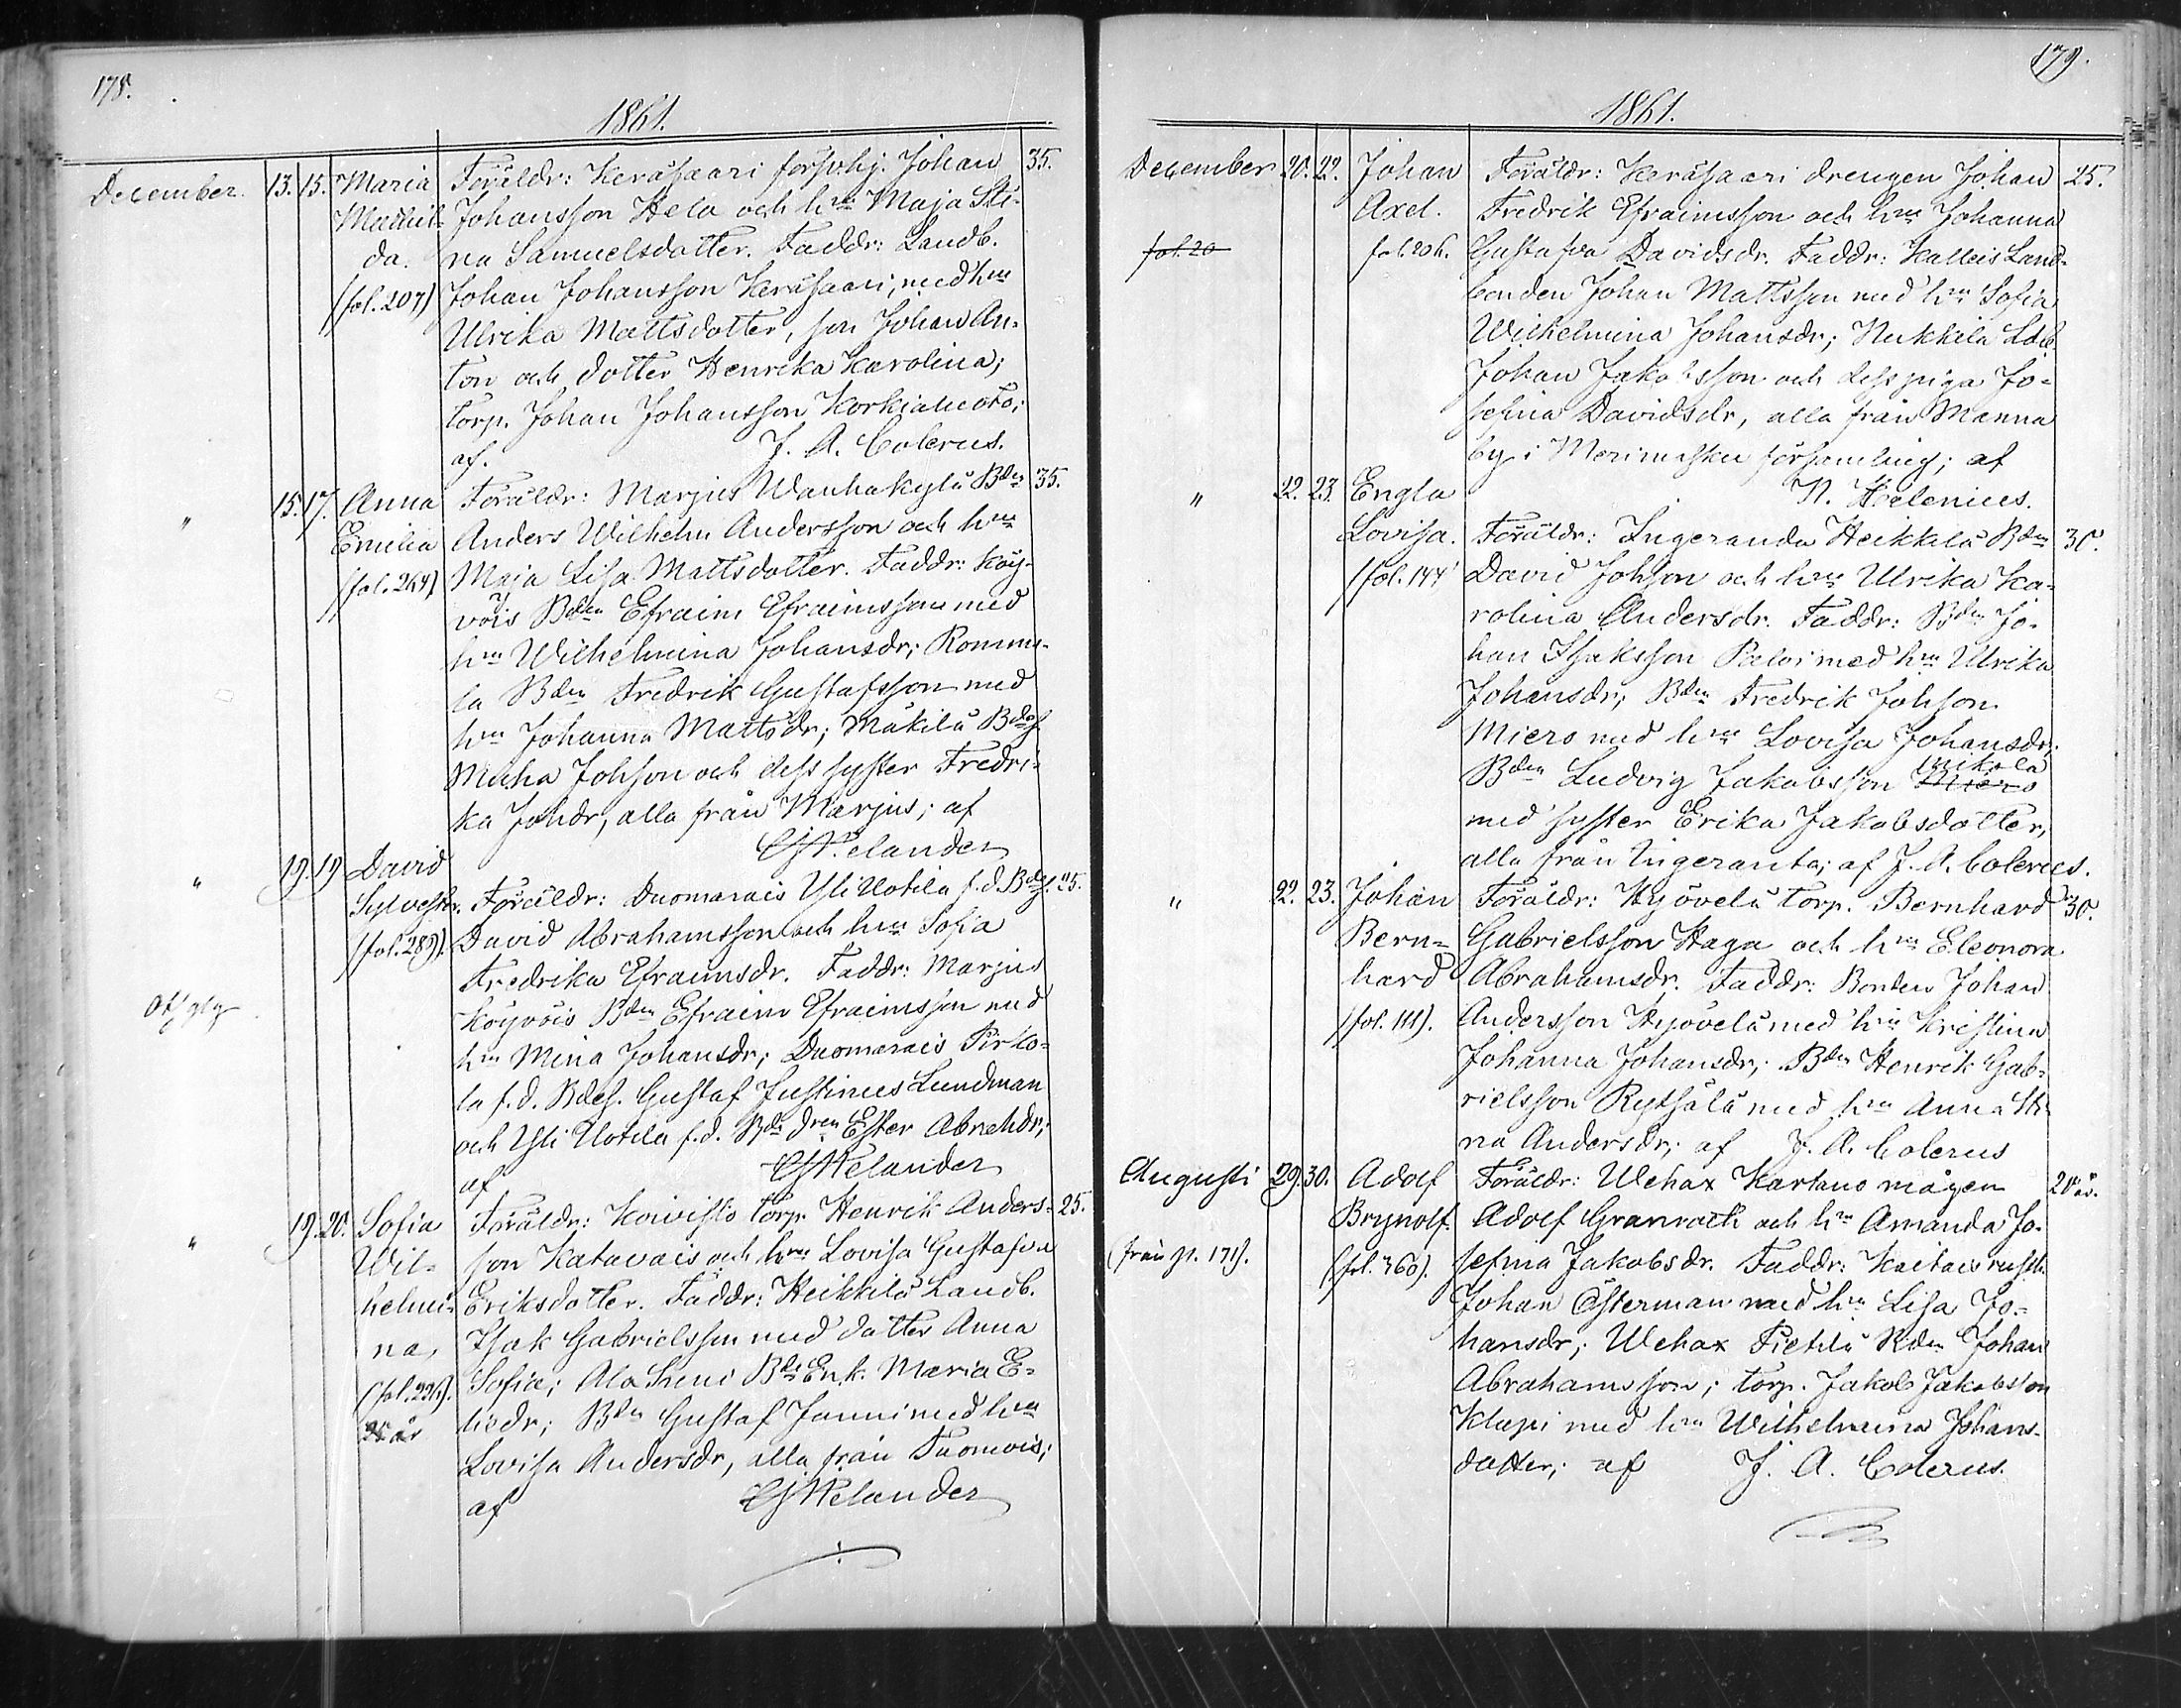 178.
1861.
December. 13. 15. Maria Föräldr: Keräsaari försvhj. Johan 35.
Mathil- Johansson Hela och hru Maja Sti-
da. na Samuelsdotter. Faddr: Landb.
(fol. 207) Johan Johansson Keräsaari, med hru
Ulrika Mattsdotter, son Johan An-
ton och dotter Henrika Karolina;
torp. Johan Johansson
af. J. A. Colerus.
" 15. 17. Anna Föräldr: Marjus Wanhakylä Bdn 35.
Emilia Anders Wilhelm Andersson och hru
(fol. 264) Maja Lisa Mattsdotter. Faddr: Köy-
vöis Bdn Efraim Efraimsson med
hru Wilhelmina Johansdr; Rommi-
la Bdn Fredrik Gustafsson med
hru Johanna Mattsdr; Mäkilä Bdes.
Johsson och dess syster Fredri-
ka Johdr, alla från Marjus; af
Welander
" 19. 19 David
Sylvester. Föräldr: Duomarais Yli Uotila f.d. Bdes. 25.
(fol. 289). David Abrahamsson och hru Sofia
Fredrika Efraimsdr. Faddr: Marjus
Köyvöis Bdn Efraim Efraimsson med
hru Mina Johansdr; Duomarais Pirko-
la f.d. Bdes. Gustaf Justinus Lundman
och Yli Uotila f.d. Bde dren Ester Abrahdr;
af Welander
" 19. 20. Sofia Föräldr: Koivisto torp. Henrik Anders- 25.
Wil- son Katavais och hru Lovisa Gustafva
helmi- Eriksdotter. Faddr: Heikkilä Landb.
na, Isak Gabrielsson med dotter Anna
(fol. 226). Sofia; Ala Sheni Bde Enk. Maria E-
25 år liedr; Bdn Gustaf Janni med hru
Lovisa Andersdr, alla från Tuomois;
af Welander
179.
1861.
December 20. 22. Johan Föräldr: Keräsaari drengen Johan 25.
Axel. Fredrik Efraimsson och hru Johanna
fol. 20 fol. 206. Gustafva Davidsdr. Faddr: Kalleis Land-
bonden Johan Mattsson med hru Sofia
Wilhelmina Johansdr; Nukkila Ldb.
Johan Jakobsson och dess piga Jo-
sefina Davidsdr, alla från Manna
by i Merimasku församling; af
" 22. 23. Engla N. Helenius.
Lovisa. Föräldr: Ingeranda Heikkilä Bdn 30.
(fol. 144) David Johsson och hru Ulrika Ka-
rolina Andersdr. Faddr: Bdn Jo-
han Isaksson Paloi med hru Ulrika
Johansdr; Bdn Fredrik Johsson
Miero med hru Lovisa Johansdr;
Bdn Ludvig Jakobsson Miero Mikola
med syster Erika Jakobsdotter,
alla från Ingeranta; af J. A. Colerus.
" 22. 23. Johan Föräldr: Hyövelä torp. Bernhard 30.
Bern- Gabrielsson Haga och hru Eleonora
hard Abrahamsdr. Faddr: Bonden Johan
(fol. 111). Andersson Hyövelä med hru Kristina
Johanna Johansdr; Bdn Henrik Gab-
rielsson Rytsälä med hru Anna Sti-
na Andersdr; af J. A. Colerus
Augusti 29. 30. Adolf Föräldr: Wehax Kartano mågen 20 år.
Brynolf. Adolf Granroth och hru Amanda Jo-
(från p. 171). (fol. 360). sefina Jakobsdr. Faddr: Kaitais rusth.
Johan Österman med hru Lisa Jo-
hansdr; Wehax Pietilä Bdn Johan
Abrahamsson; torp. Jakob Jakobsson
Klapi med hru Wilhelmina Johans-
dotter; af J. A. Colerus.